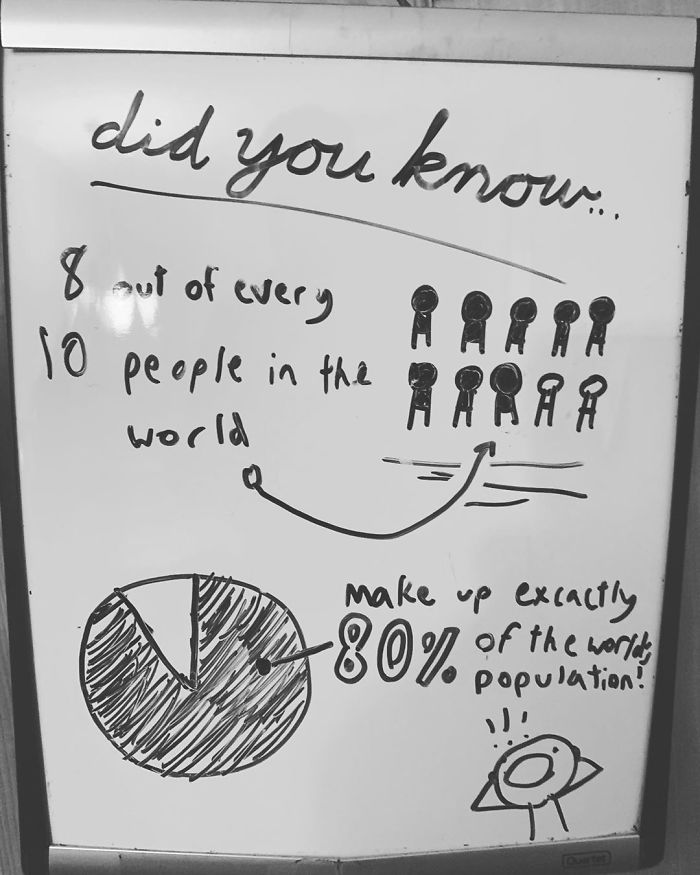 did you know...
8 out of every
10 people in the
world
make up excactly
80% of the worlds
population!
!!!
Quartet